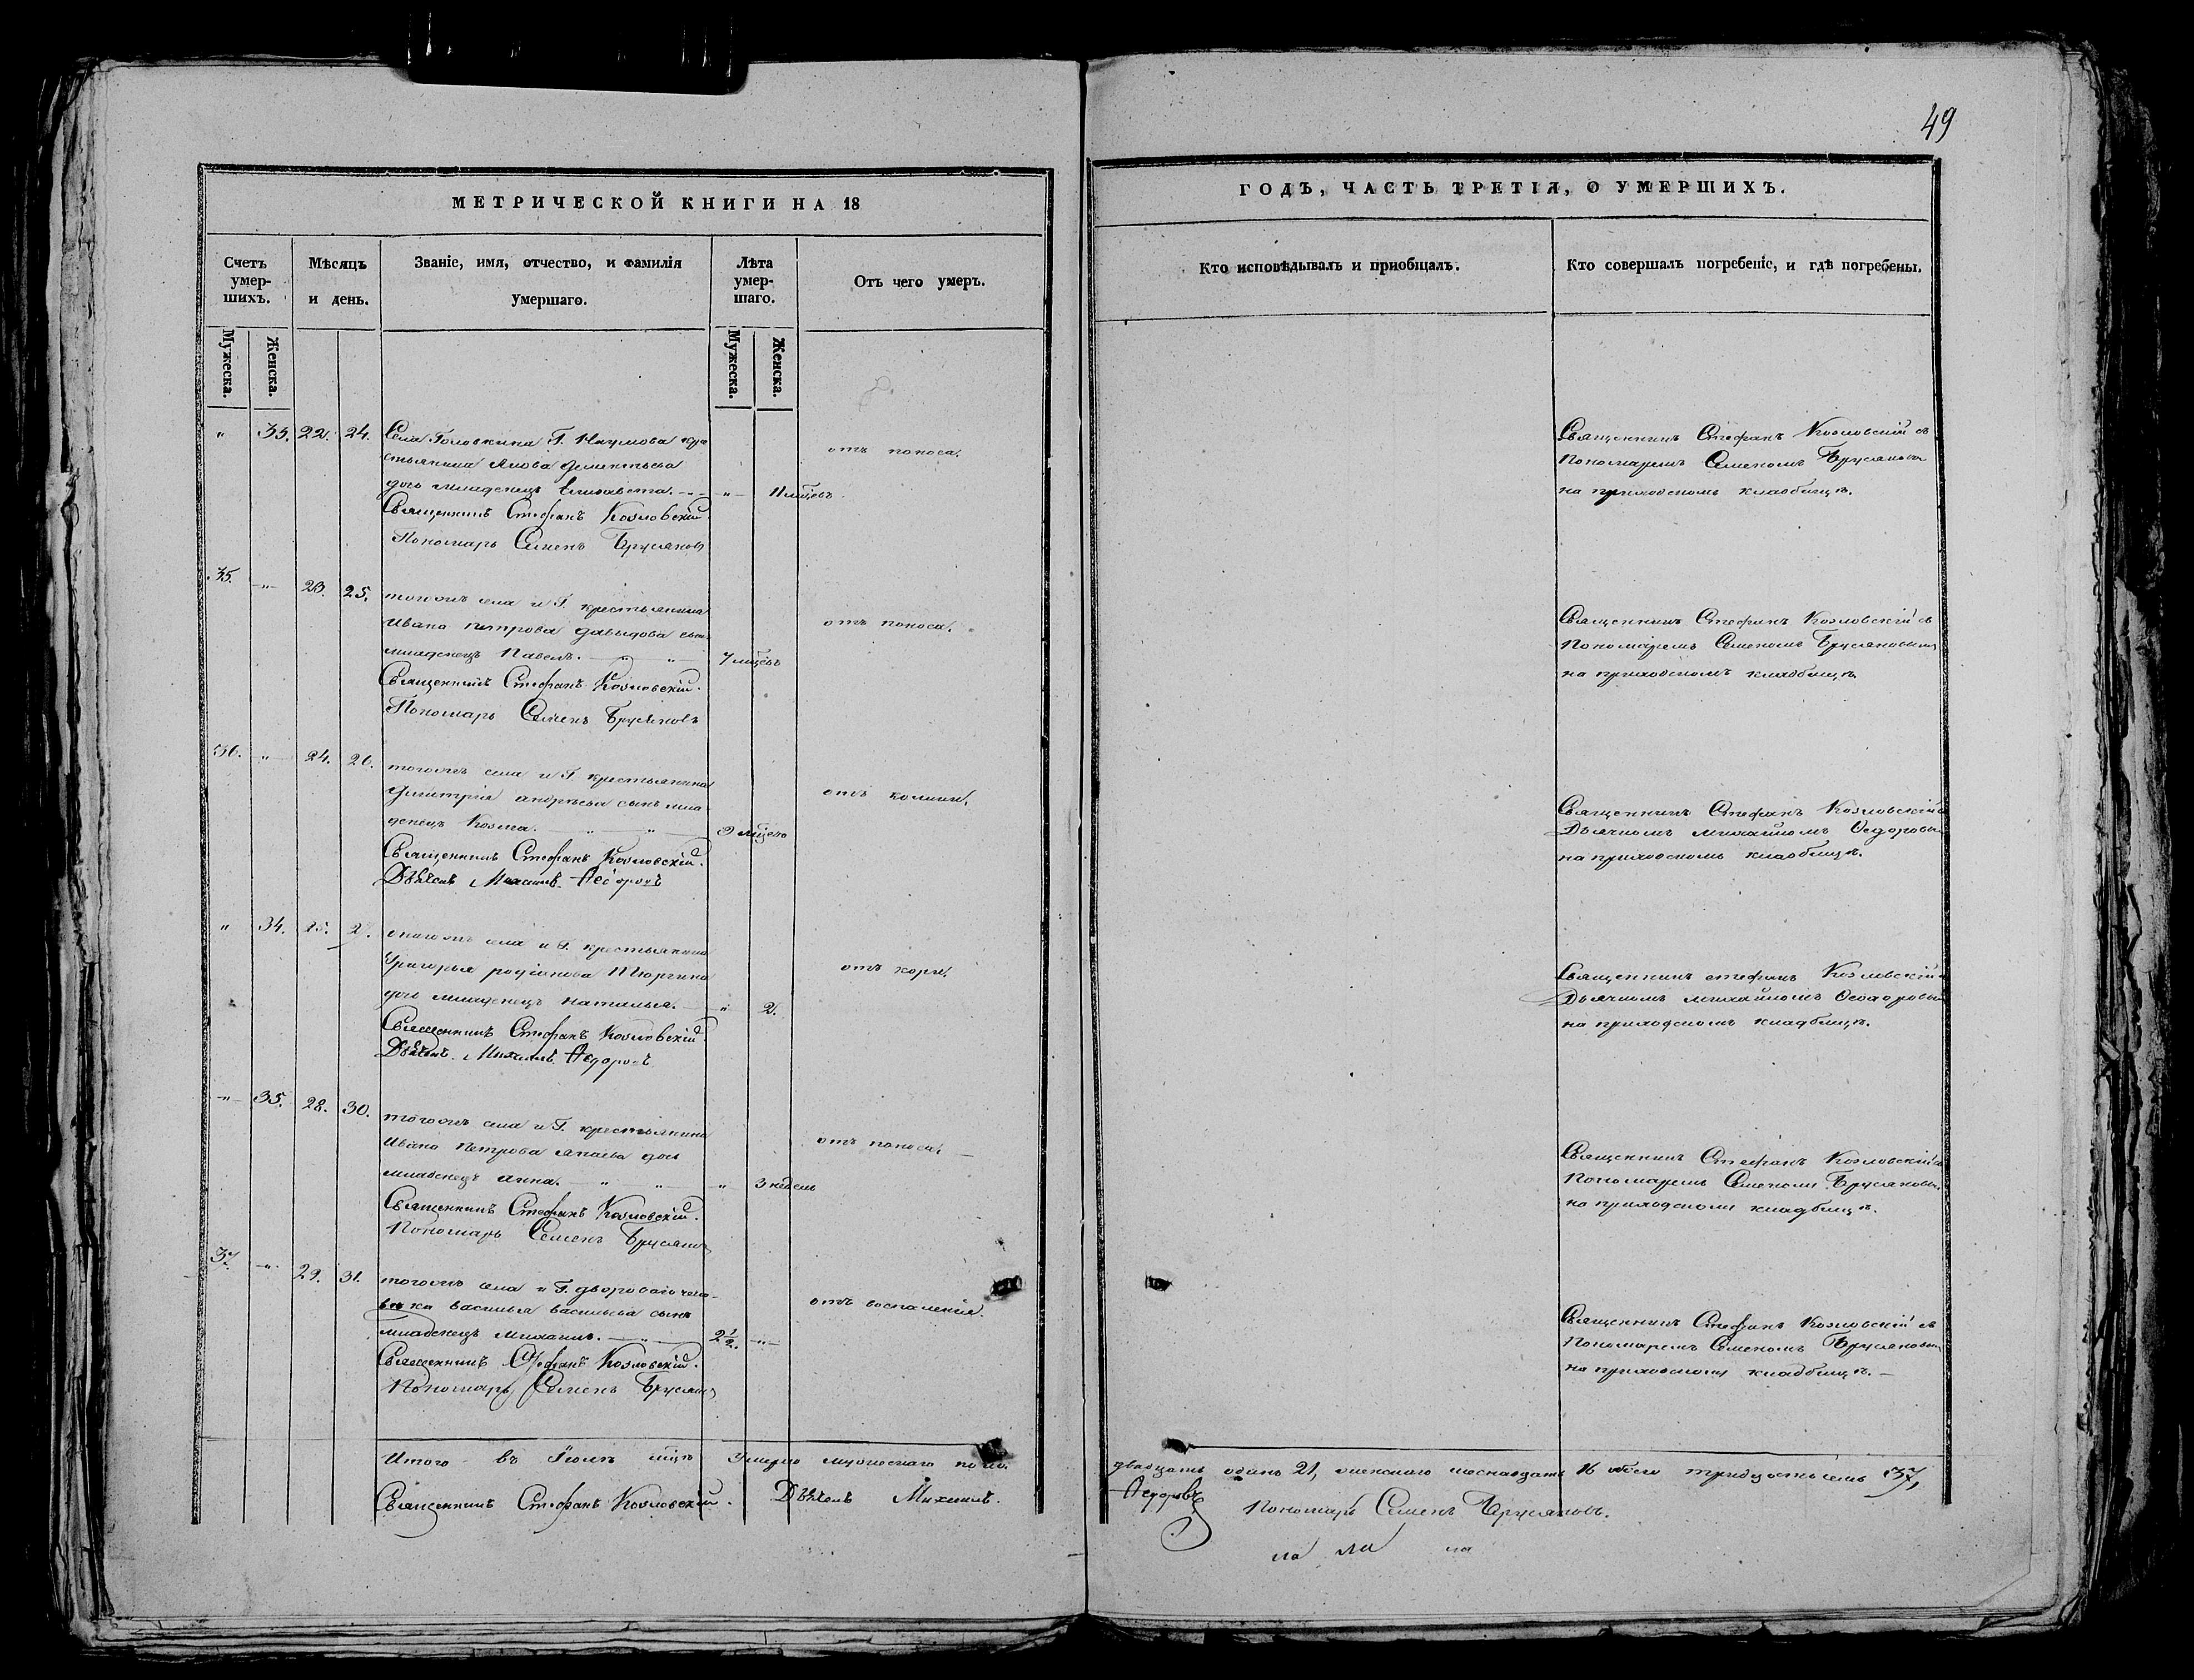 49
МЕТРИЧЕСКОЙ КНИГИ НА 18
ГОДЪ, ЧАСТЬ ТРЕТІЯ, О УМЕРШИХЪ.
Счетъ умер-шихъ.
Мѣсяцъ и день.
Званіе, имя, отчество, и фамилія умершаго.
Лѣта умер-шаго.
Отъ чего умеръ.
Кто исповѣдывалъ и приобщалъ.
Кто совершалъ погребеніе, и гдѣ погребены.
Мужеска.
Женска.
Мужеска.
Женска.
" 33. 22. 24. Села Головкина Г. Наумова кре
стьянина Якова
дочь младенецъ Елисавета. " 11 мцевъ
отъ поноса.
Священникъ Стефанъ Козловскій
Пономарь Семенъ Брусяновъ
Священникъ Стефанъ Козловскій съ
Пономаремъ Семеномъ Брусяновы
на приходскомъ кладбищѣ.
35. " 23. 25. тогожъ села и Г. крестьянина
Ивана Петрова Давыдова сынъ
младенецъ Павелъ. 7 мцевъ
отъ поноса.
Священникъ Стефанъ Козловскій.
Пономарь Семенъ Брусяновъ
Священникъ Стефанъ Козловскій съ
Пономаремъ Семеномъ Брусяновымъ
на приходскомъ кладбищѣ
36. " 24. 26. тогожъ села и Г. крестьянина
Димитрія Андреева сынъ мла
денецъ Козма. 9 мцевъ
отъ
Священникъ Стефанъ Козловскій.
Дьячекъ Михаилъ Ѳедоровъ
Священникъ Стефанъ Козловскій съ
Дьячкомъ Михайломъ Ѳедоровы
на приходскомъ кладбищѣ.
" 34. 25. 27. тогожъ села и Г. крестьянина
Григорья Родіонова Тюргина
дочь младенецъ Наталья. " 2.
отъ кори.
Священникъ Стефанъ Козловскій.
Дьячекъ Михаилъ Ѳедоровъ
Священникъ Стефанъ Козловскій съ
Дьячкомъ Михайломъ Ѳеодоровы
на приходскомъ кладбищѣ.
" 35. 28. 30. тогожъ села и Г. крестьянина
Ивана Петрова дочь
младенецъ Анна. " 3 недель
отъ поноса.
Священникъ Стефанъ Козловскій.
Пономарь Семенъ Брусяновъ
Священникъ Стефанъ Козловскій съ
Пономаремъ Семеномъ Брусяновы
на приходскомъ кладбищѣ.
37. " 29. 31. тогожъ села и Г. двороваго чело-
вѣка Василья Васильева сынъ
младенецъ Михаилъ. 2 1/2. "
отъ воспаленія.
Священникъ Стефанъ Козловскій.
Пономарь Семенъ Брусяновъ
Священникъ Стефанъ Козловскій съ
Пономаремъ Семеномъ Брусяновы
на приходскомъ кладбищѣ.
Итого въ Іюлѣ мцѣ умерло мужескаго пола
двадцать одинъ 21, женскаго шеснадцать 16 обоего тридцать семь 37,
Священникъ Стефанъ Козловскій. Дьячекъ Михаилъ
Ѳедоровъ
Пономарь Семенъ Брусяновъ.